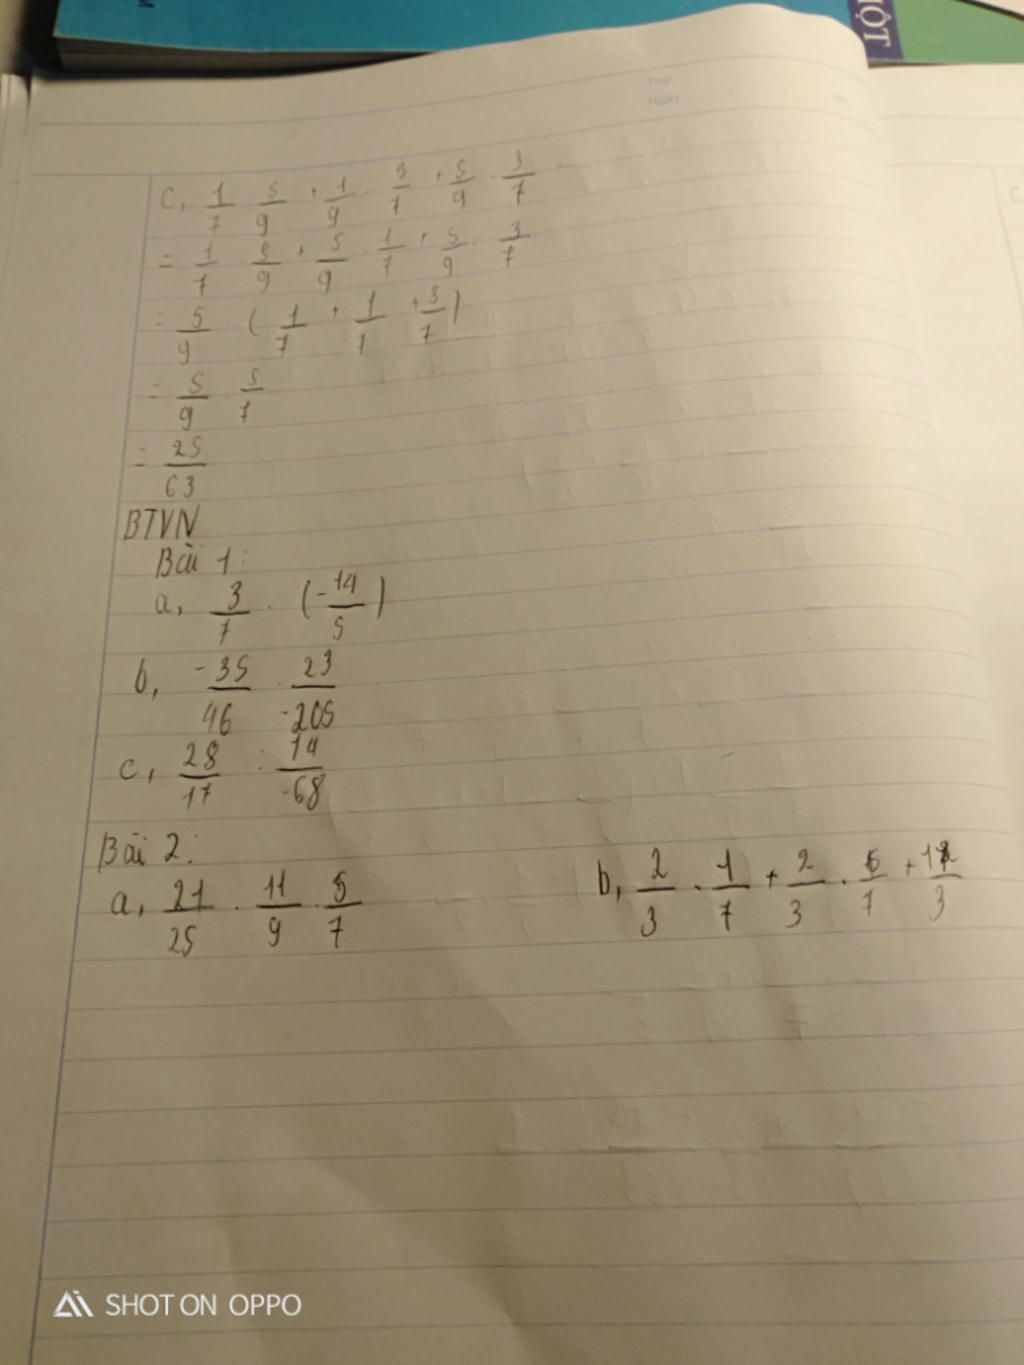 ỘT
Thứ
Ngày
c, 1/7 . 5/9 + 1/9 . 5/7 + 5/9 . 3/7
= 1/7 . 5/9 + 5/9 . 1/7 + 5/9 . 3/7
= 5/9 . ( 1/7 + 1/7 + 3/7 )
= 5/9 . 5/7
= 25/63
BTVN
Bài 1:
a, 3/7 . (-14/5)
b, -35/46 . 23/-205
c, 28/17 : 14/-68
Bài 2:
a, 21/25 . 11/9 . 5/7
b, 2/3 . 1/7 + 2/3 . 6/7 +
SHOT ON OPPO